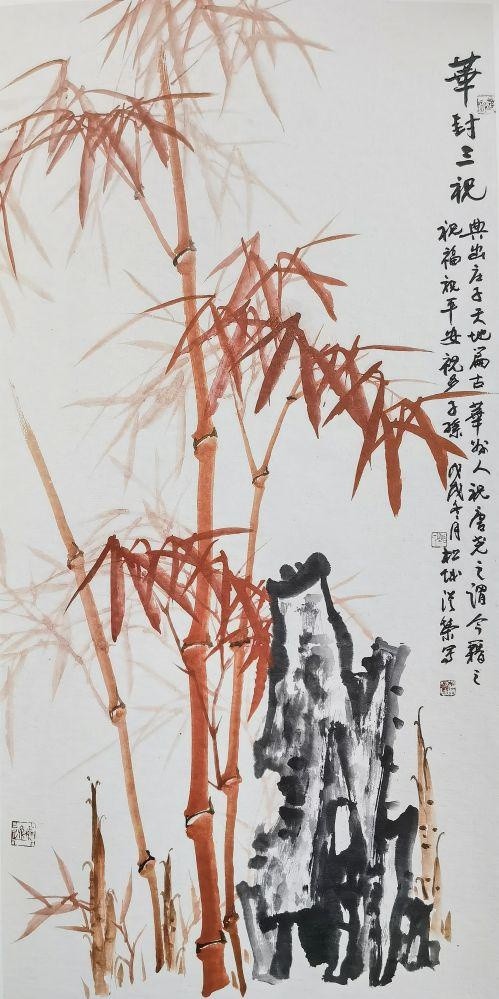 華封三祝
典出庄子天地篇古華封人祝唐尧之謂今藉之
祝福祝平安祝多子孫 戊戌冬月松城洪榮写